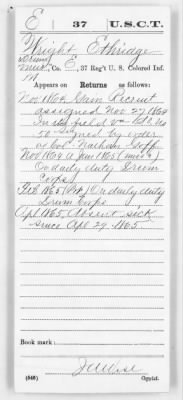 E 37 U.S.C.T.
Wright, Ethridge
Co. E, 37 Reg't U. S. Colored Inf.
Appears on Returns as follows:
Nov 1864, Gain Recruit
assigned Nov 27 1864
In the field Va
50 signed by order
of Col. Nathan Goff
Nov 1864 to Jan 1865
On daily duty Drum
Corps
Feb 1865 On daily duty
Drum Corps
Apl 1865, Absent sick
since Apl 29. 1865
Book mark:
J M Wise
(546) Copyist.